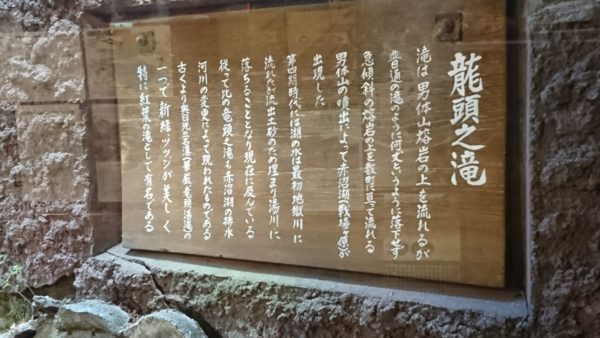 龍頭之滝
滝は男体山熔岩の上を流れるが
普通の滝のように何丈というように落下せず
急傾斜の熔岩の上を数町に亘って流れる
男体山の噴出によって赤沼湖(戦場ヶ原)が
出現した
第四期時代には湖の水は最初地獄川に
流れたが流出土砂のため埋まり湯川に
落ちることとなり現在に及んでいる
従って此の竜頭之滝も赤沼湖の排水
河川の変更によって現われたものである
古くより奥日光三名瀑(華厳、竜頭、湯滝)の
一つで新緑ツツジが美しく
特に紅葉の滝として有名である